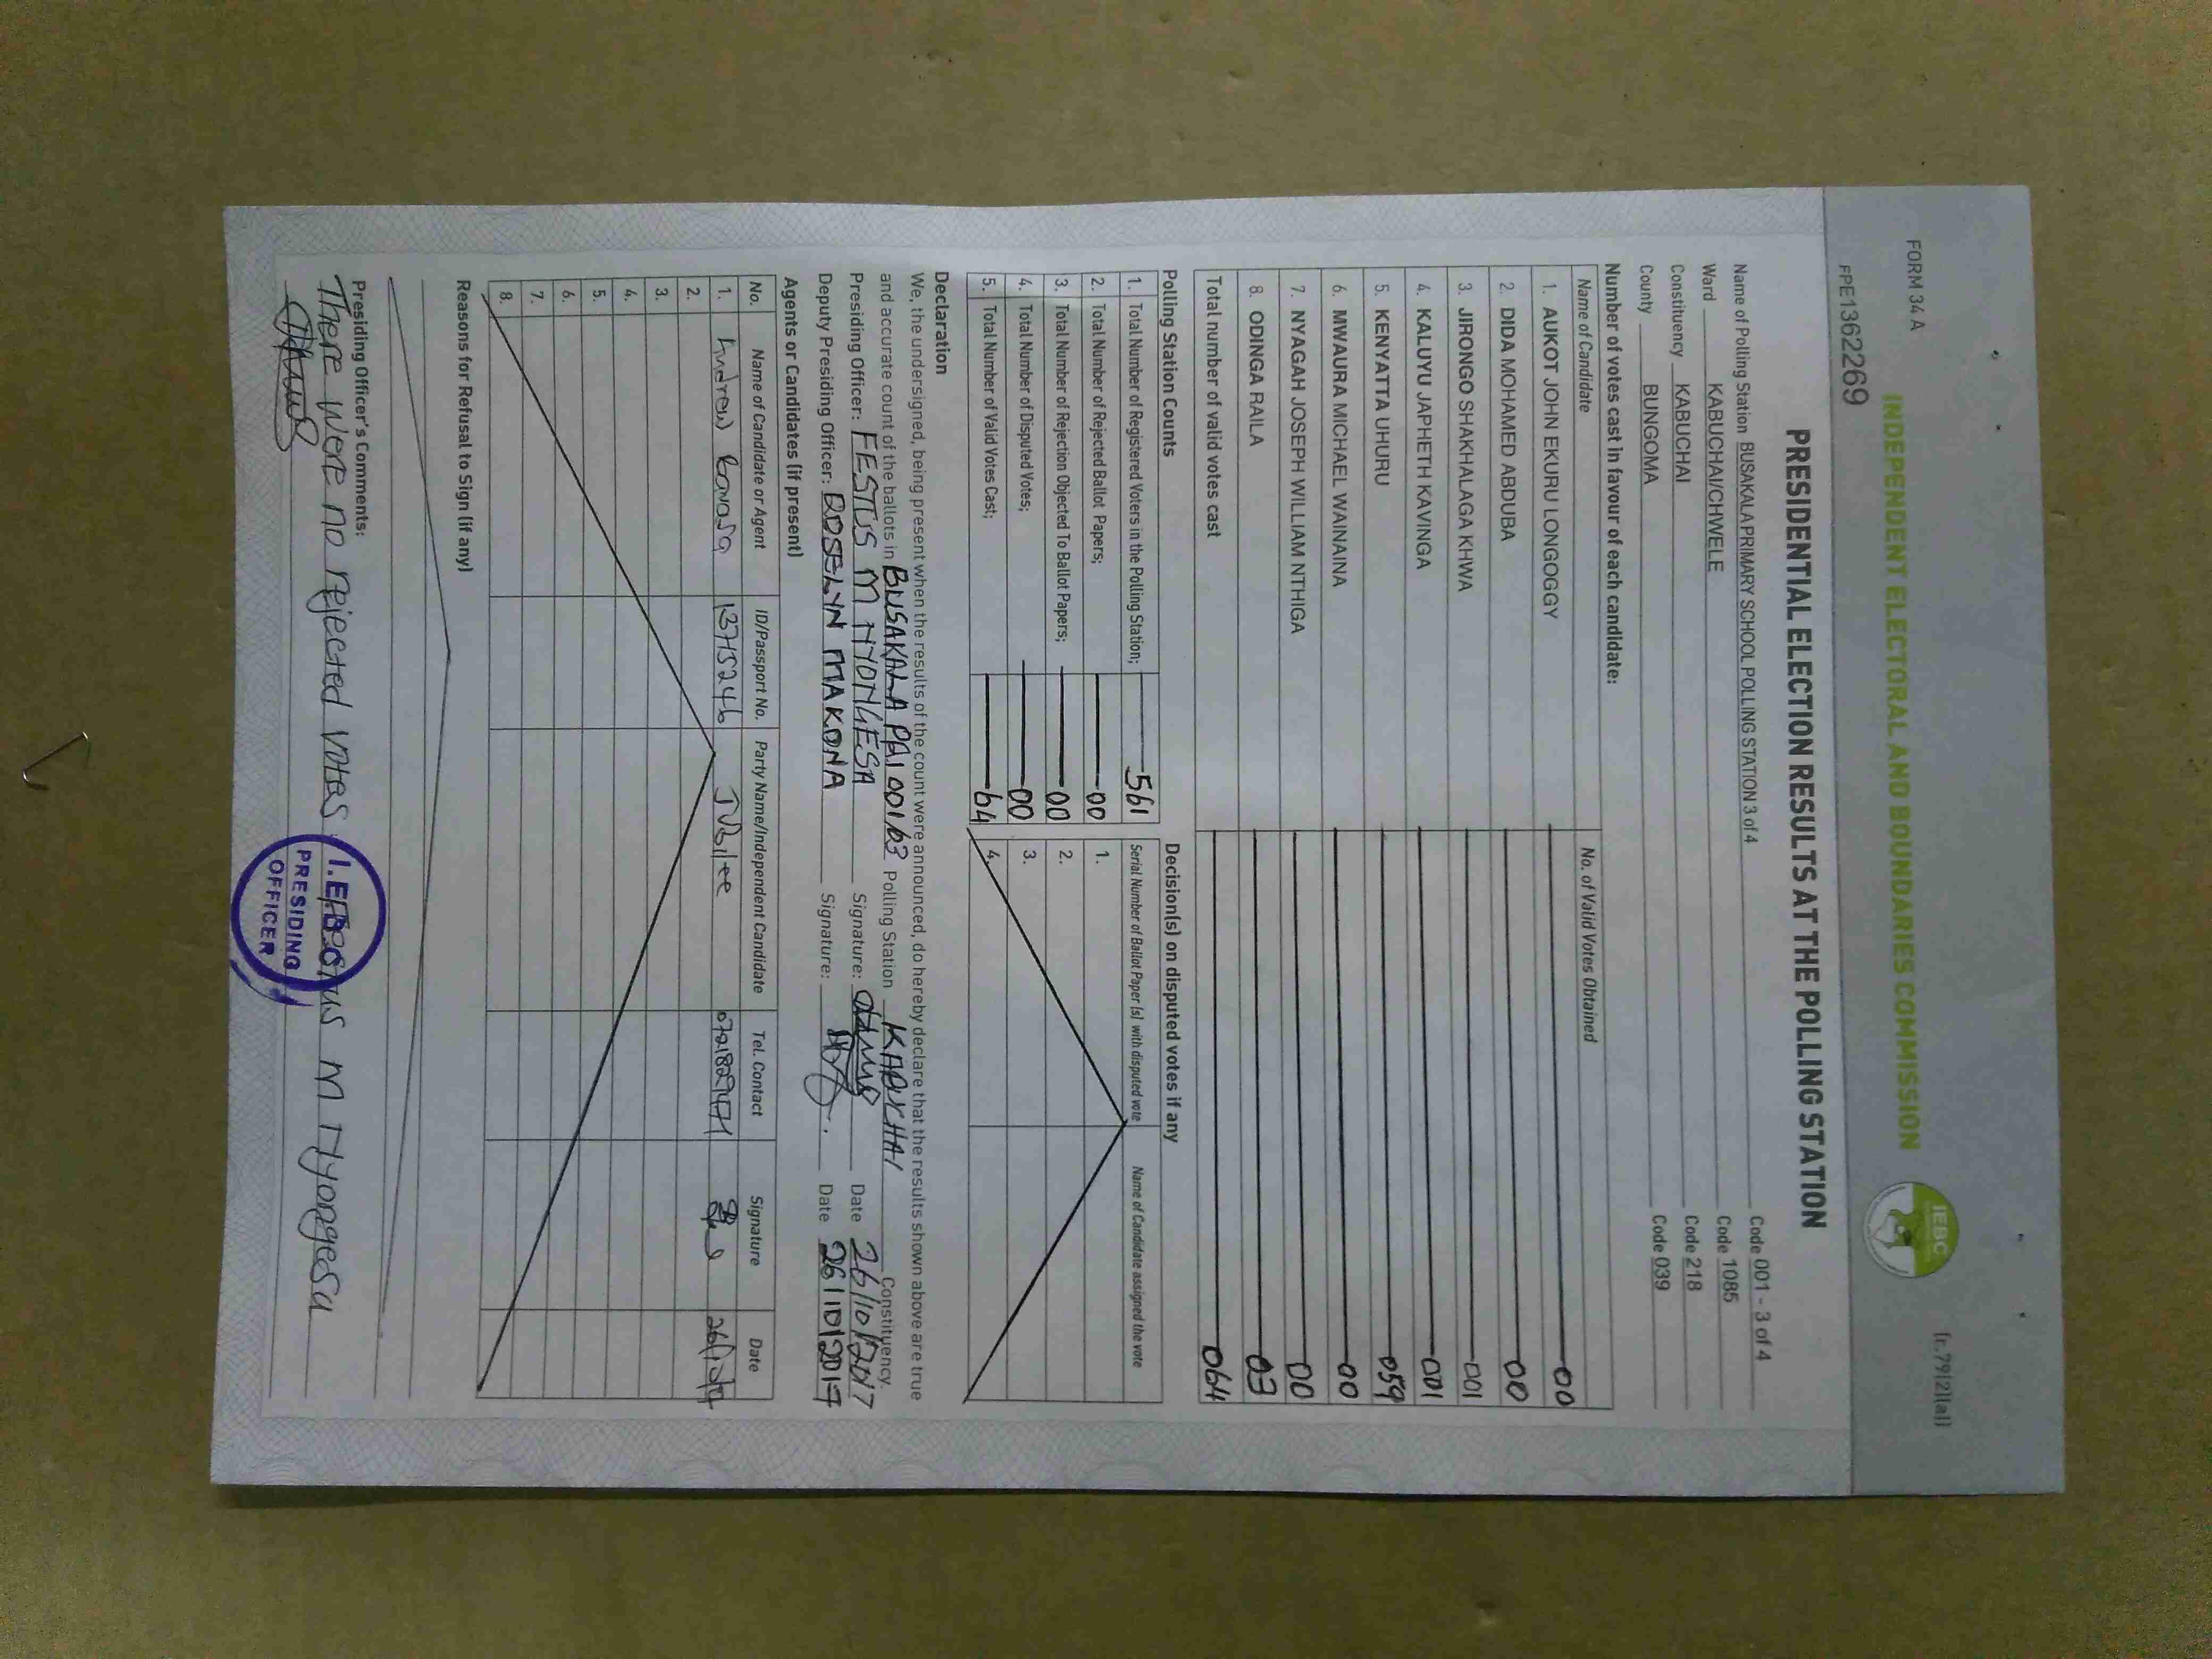 FORM 34 A
(r.79(2)(a))
INDEPENDENT ELECTORAL AND BOUNDARIES COMMISSION
IEBC
FPE1362269
PRESIDENTIAL ELECTION RESULTS AT THE POLLING STATION
Name of Polling Station BUSAKALA PRIMARY SCHOOL POLLING STATION 3 of 4 Code 001 - 3 of 4
Ward KABUCHAI/CHWELE Code 1085
Constituency KABUCHAI Code 218
County BUNGOMA Code 039
Number of votes cast in favour of each candidate:
Name of Candidate No. of Valid Votes Obtained
1. AUKOT JOHN EKURU LONGOGGY 00
2. DIDA MOHAMED ABDUBA 00
3. JIRONGO SHAKHALAGA KHWA 001
4. KALUYU JAPHETH KAVINGA 001
5. KENYATTA UHURU 059
6. MWAURA MICHAEL WAINAINA 00
7. NYAGAH JOSEPH WILLIAM NTHIGA 00
8. ODINGA RAILA 03
Total number of valid votes cast 064
Polling Station Counts
1. Total Number of Registered Voters in the Polling Station; 561
2. Total Number of Rejected Ballot Papers; 00
3. Total Number of Rejection Objected To Ballot Papers; 00
4. Total Number of Disputed Votes; 00
5. Total Number of Valid Votes Cast; 64
Decision(s) on disputed votes if any
Serial Number of Ballot Paper (s) with disputed vote Name of Candidate assigned the vote
1.
2.
3.
4.
Declaration
We, the undersigned, being present when the results of the count were announced, do hereby declare that the results shown above are true
and accurate count of the ballots in BUSAKALA PRI 001/03 Polling Station KABUCHAI Constituency.
Presiding Officer: FESTUS M NYONGESA Signature: Date 26/10/2017
Deputy Presiding Officer: ROSELYN MAKONA Signature: Date 26/10/2017
Agents or Candidates (if present)
No. Name of Candidate or Agent ID/Passport No. Party Name/Independent Candidate Tel. Contact Signature Date
1. Andrew 13775246 Jubilee
2.
3.
4.
5.
6.
7.
8.
Reasons for Refusal to Sign (if any)
Presiding Officer's Comments:
There were no rejected votes. M Nyongesa
I.E.B.C
PRESIDING
OFFICER